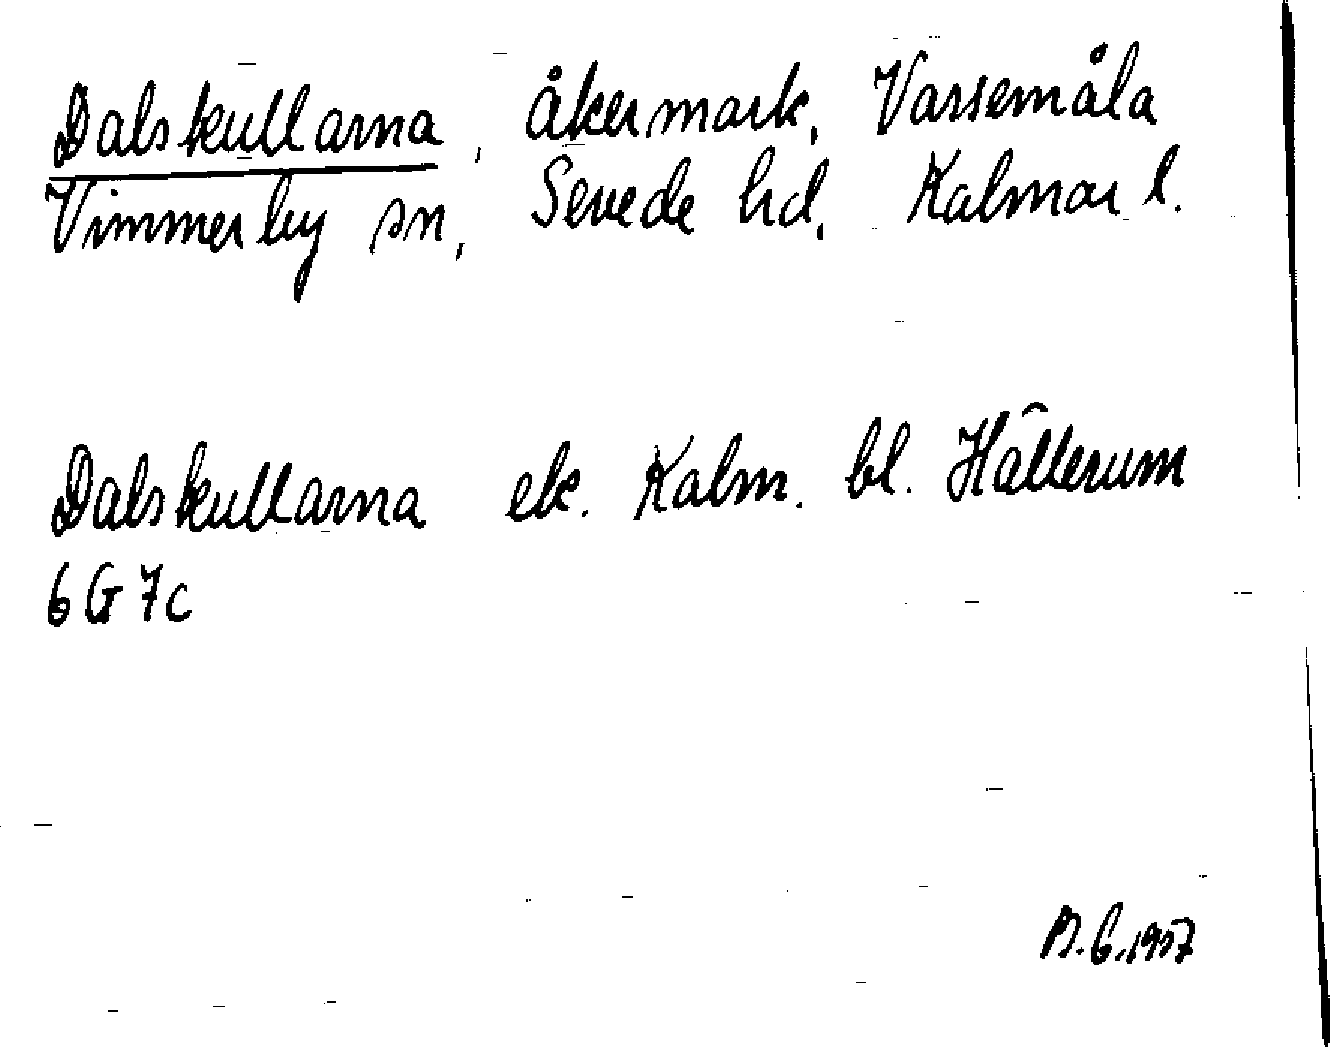 Dalskullarna, åkermark, Varsemåla
Vimmerby sn, Sevede hd, Kalmar l.
Dalskullarna ek. Kalm. bl. Hällerum
6G7c
B.G.1957